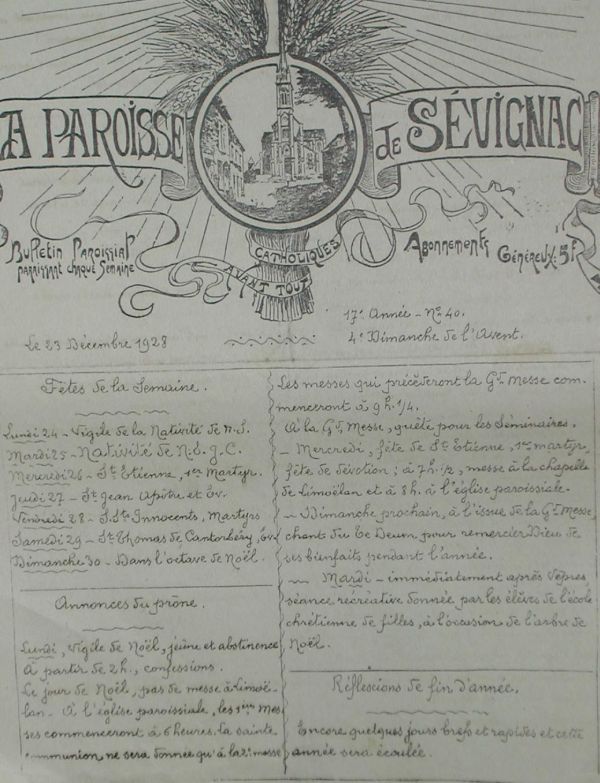 A PAROISSE
de SÉVIGNAC
Bulletin Paroissial
paraissant chaque Semaine
CATHOLIQUES
AVANT TOUT
Abonnements
Généreux: 5F
17e Année - No 40.
Le 23 Décembre 1928
4e Dimanche de l'Avent.
Fêtes de la Semaine.
Lundi 24 - Vigile de la Nativité de N.S.
Mardi 25 - Nativité de N.S.J.C.
Mercredi 26 - St Etienne, 1er Martyr.
Jeudi 27 - St Jean Apôtre et Ev.
Vendredi 28 - S.Sts Innocents, Martyrs
Samedi 29 - St Thomas de Cantorbéry, Ev.
Dimanche 30 - Dans l'octave de Noël.
Annonces du prône.
Lundi, vigile de Noël, jeûne et abstinence
À partir de 2h., confessions.
Le jour de Noël, pas de messe à Limoë-
lan - À l'église paroissiale, les 1ères Mes
ses commenceront à 6 heures. la sainte
communion ne sera donnée qu'à la 2e messe
Les messes qui précéderont la Gd. Messe com-
menceront à 9h. 1/4.
À la Gd. Messe, quête pour les Séminaires.
- Mercredi, fête de St Etienne, 1er martyr,
fête de dévotion; à 7h. 1/2, messe à la chapelle
de Limoëlan et à 8h. à l'église paroissiale.
- Dimanche prochain, à l'issue de la Gd Messe,
chant du Te Deum, pour remercier Dieu de
ses bienfaits pendant l'année.
- Mardi - immédiatement après Vêpres
séance récréative donnée par les élèves de l'école
chrétienne de filles, à l'occasion de l'arbre de
Noël.
Réflescions de fin d'année.
Encore quelques jours brefs et rapides et cette
année sera écoulée.